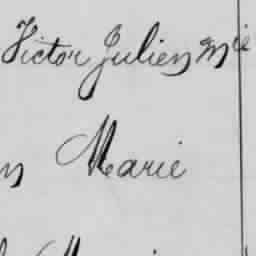 Victor Julien Mie
Marie